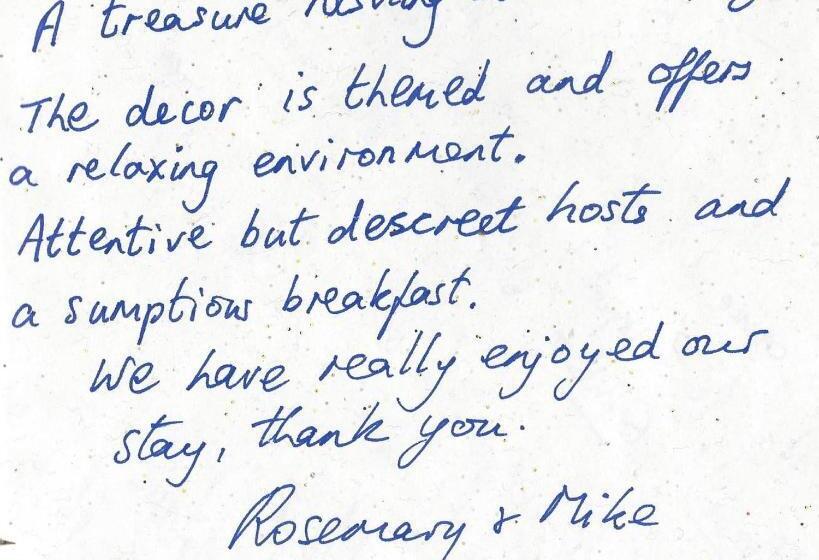 A treasure
The decor is themed and offers
a relaxing environment.
Attentive but descreet hosts and
a sumptious breakfast.
We have really enjoyed our
stay, thank you.
Rosemary & Mike